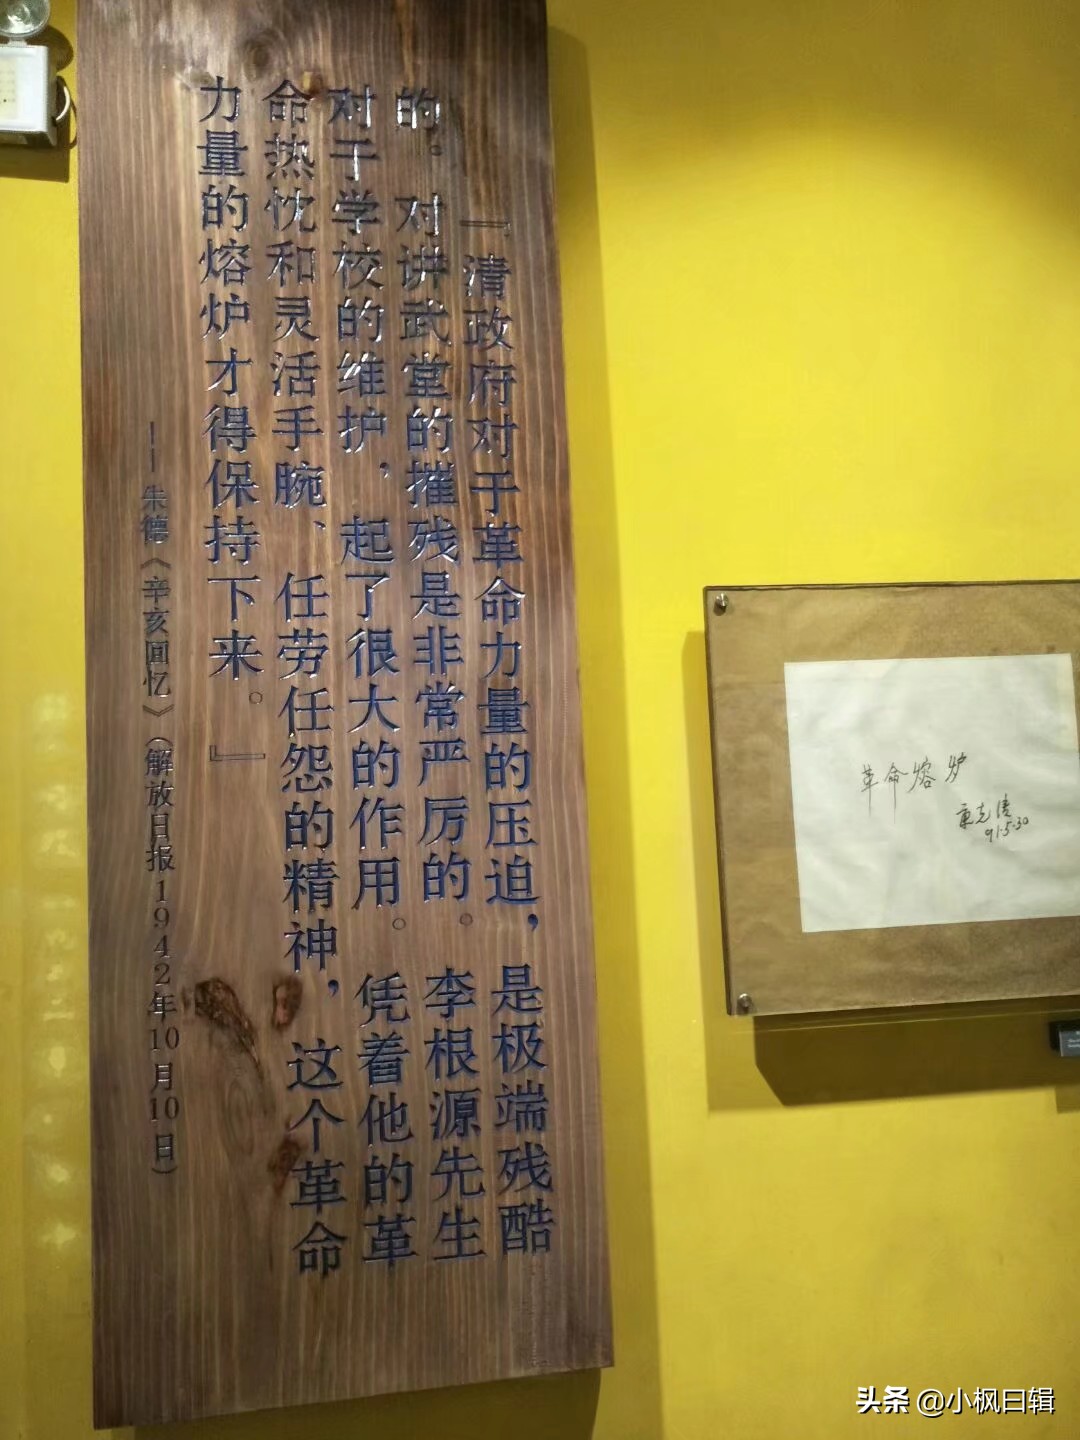 『清政府对于革命力量的压迫，是极端残酷
的。对讲武堂的摧残是非常严厉的。李根源先生
对于学校的维护，起了很大的作用。凭着他的革
命热忱和灵活手腕、任劳任怨的精神，这个革命
力量的熔炉才得保持下来。』
——朱德《辛亥回忆》（解放日报1942年10月10日）
革命熔炉
康克清
91·5·30
头条 @小枫曰辑